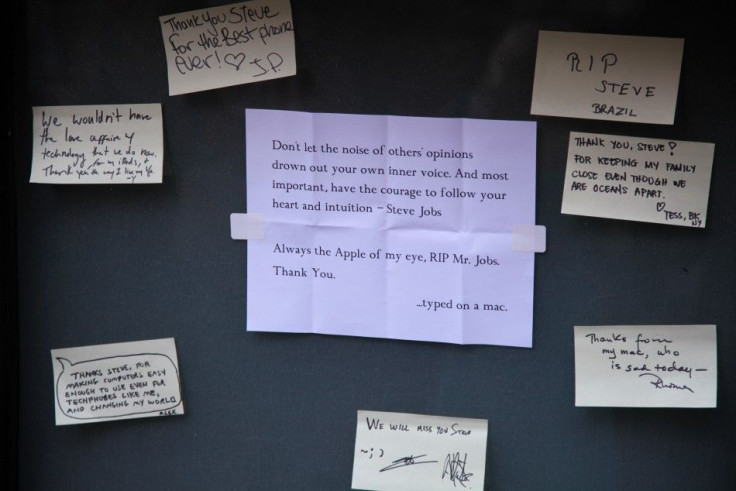 Thank You Steve
for the Best phone
ever! ♡ J.P.
RIP
STEVE
BRAZIL
We wouldn't have
the love affair w/
technology that we do now.
Thank you
Don't let the noise of others' opinions
drown out your own inner voice. And most
important, have the courage to follow your
heart and intuition – Steve Jobs
Always the Apple of my eye, RIP Mr. Jobs.
Thank You.
...typed on a mac.
THANK YOU, STEVE ♡
FOR KEEPING MY FAMILY
CLOSE EVEN THOUGH WE
ARE OCEANS APART.
♡ TESS, BK
NY
THANKS STEVE, FOR
MAKING COMPUTERS EASY
ENOUGH TO USE EVEN FOR
TECHPHOBES LIKE ME,
AND CHANGING MY WORLD
Thanks from
my mac, who
is sad today—
WE WILL MISS YOU STEVE
~;)